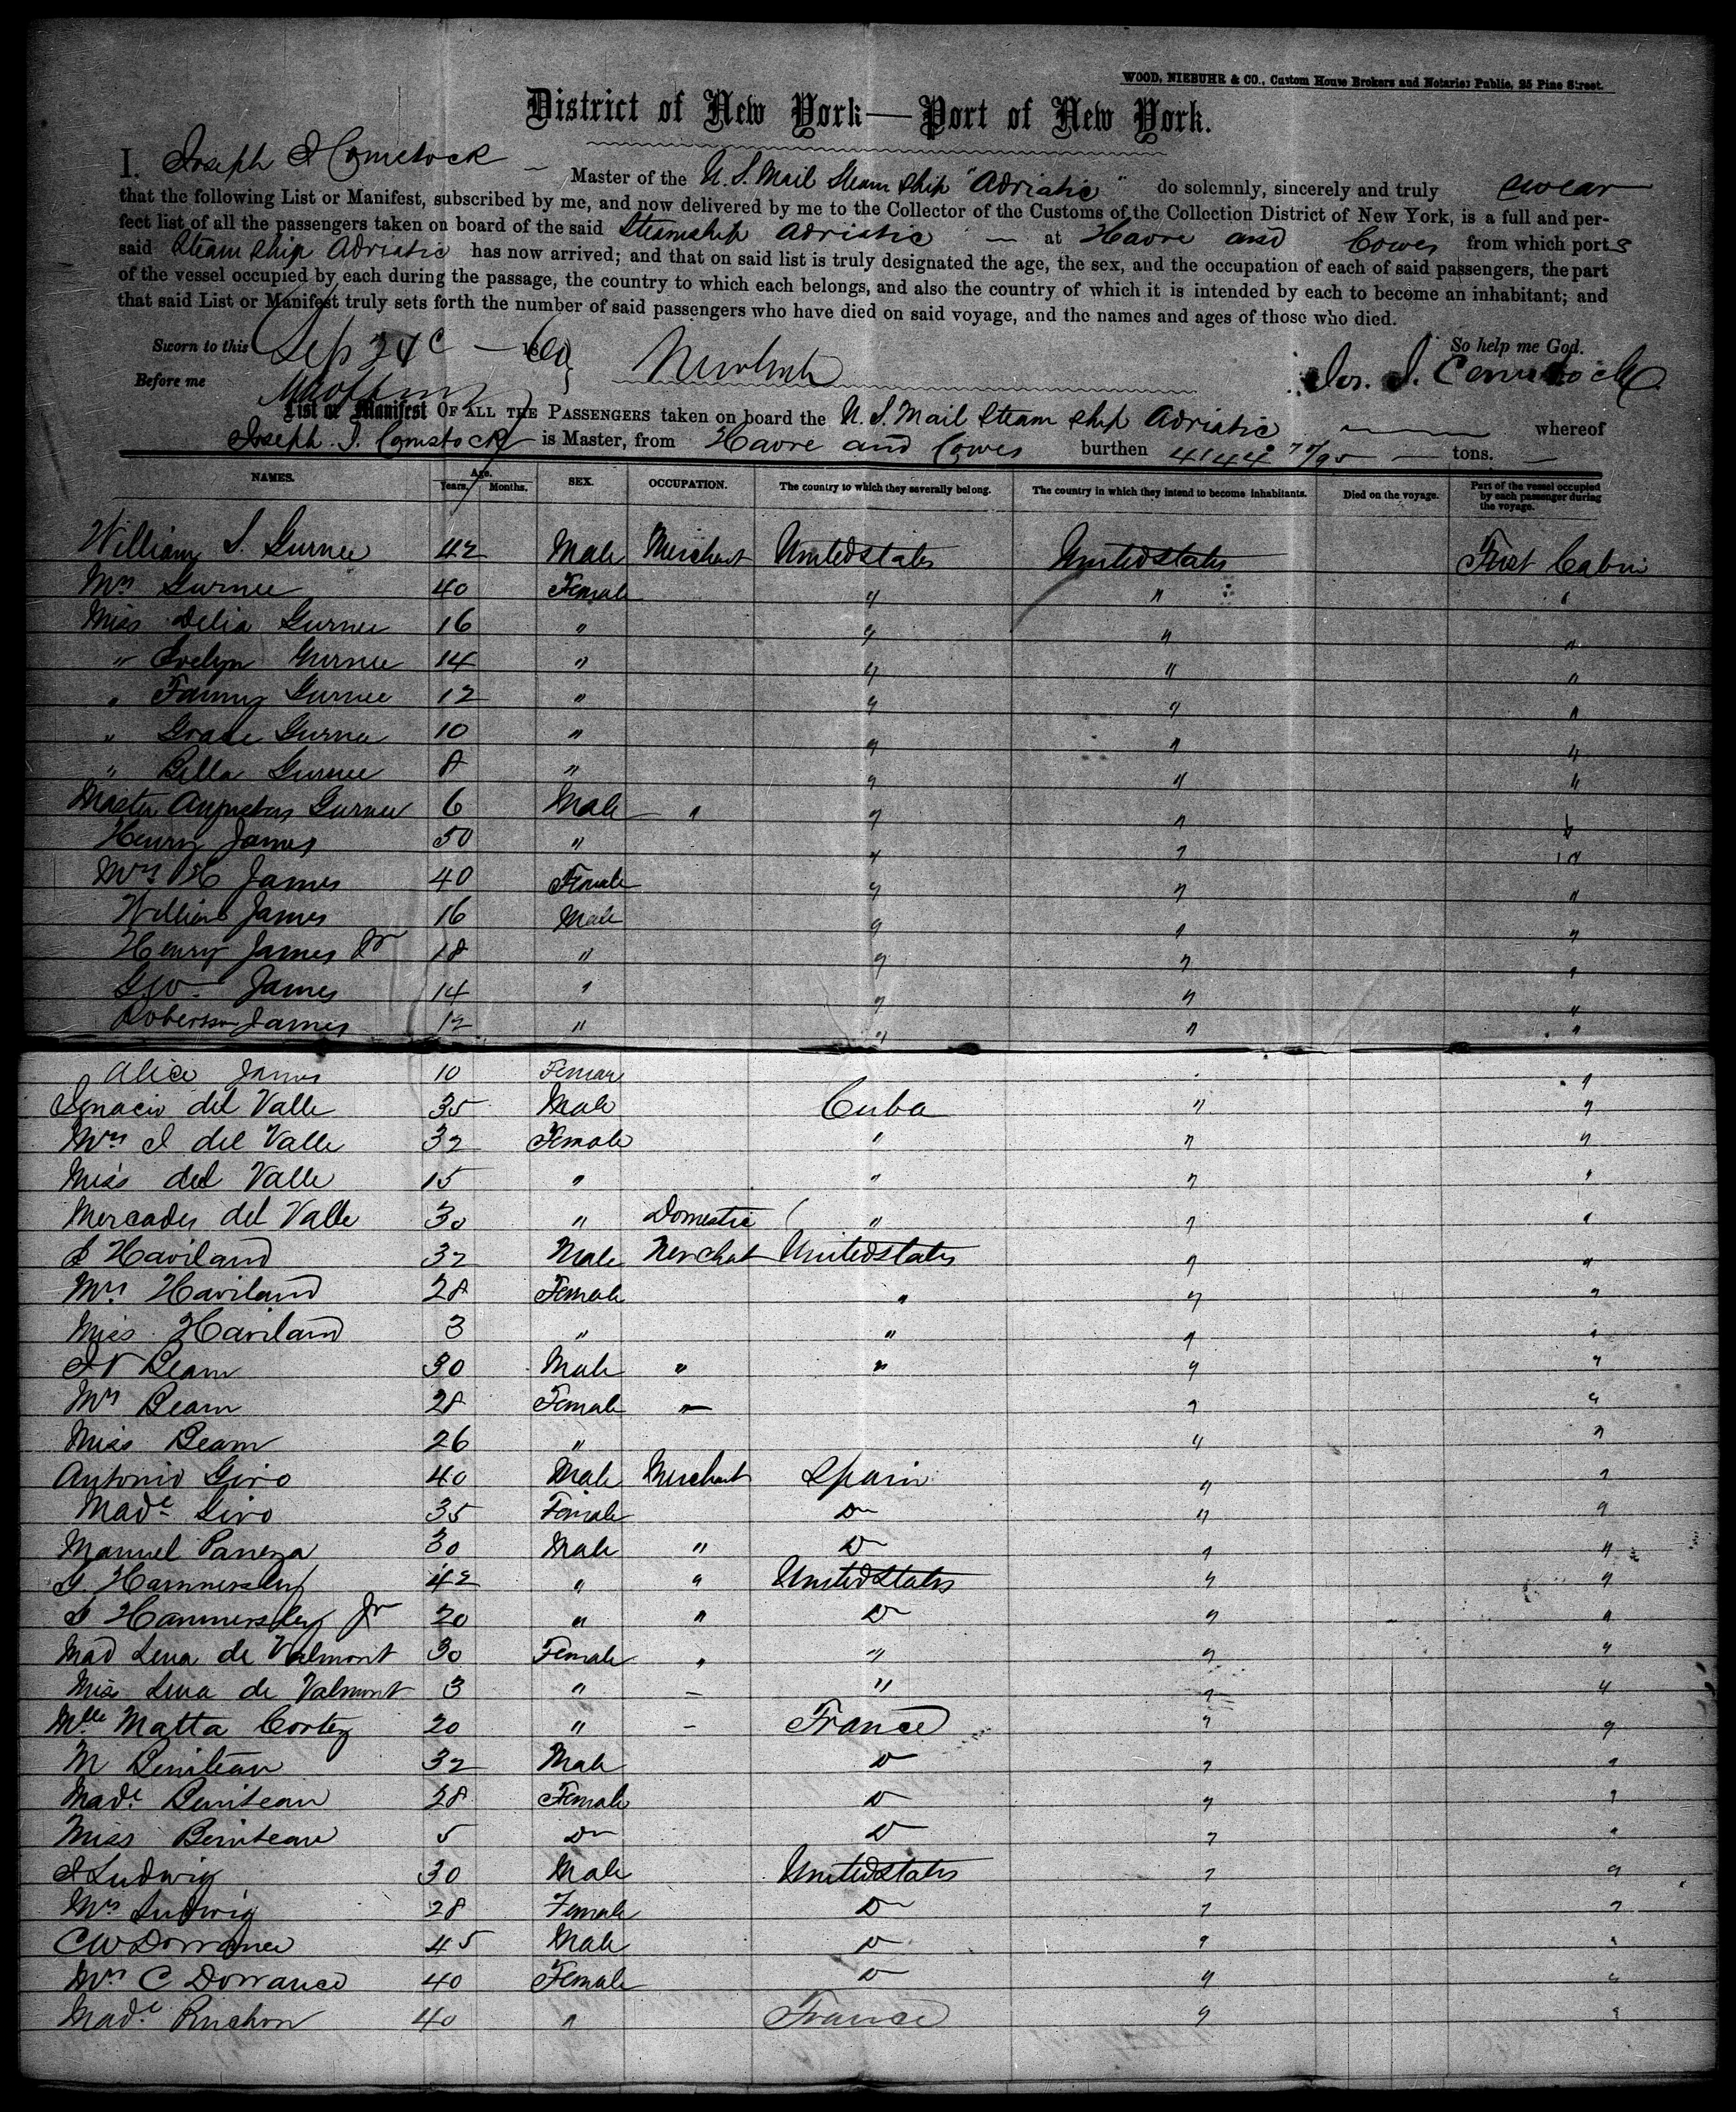 WOOD, NIEBUHR & CO., Custom House Brokers and Notaries Public, 25 Pine Street.
District of New York—Port of New York.
I, Joseph J Comstock — Master of the U. S. Mail Steam Ship "Adriatic" do solemnly, sincerely and truly swear
that the following List or Manifest, subscribed by me, and now delivered by me to the Collector of the Customs of the Collection District of New York, is a full and per-
fect list of all the passengers taken on board of the said Steamship Adriatic — at Havre and Cowes from which ports
said Steam Ship Adriatic has now arrived; and that on said list is truly designated the age, the sex, and the occupation of each of said passengers, the part
of the vessel occupied by each during the passage, the country to which each belongs, and also the country of which it is intended by each to become an inhabitant; and
that said List or Manifest truly sets forth the number of said passengers who have died on said voyage, and the names and ages of those who died.
Sworn to this Sep 24 — 1860 So help me God.
Before me Jos. J. Comstock
List or Manifest OF ALL THE PASSENGERS taken on board the U. S. Mail Steam Ship Adriatic whereof
Joseph J. Comstock is Master, from Havre and Cowes burthen 4144 77/95 — tons. —
NAMES. Age. Years. Months. SEX. OCCUPATION. The country to which they severally belong. The country in which they intend to become inhabitants. Died on the voyage. Part of the vessel occupied by each passenger during the voyage.
William S. Gurnee 42 Male Merchant United States United States First Cabin
Mrs Gurnee 40 Female " " "
Miss Delia Gurnee 16 " " " "
" Evelyn Gurnee 14 " " " "
" Fanny Gurnee 12 " " " "
" Grace Gurnee 10 " " " "
" Bella Gurnee 8 " " " "
Master Augustus Gurnee 6 Male " " " "
Henry James 50 " " " "
Mrs H James 40 Female " " "
William James 16 Male " " "
Henry James Jr 18 " " " "
James 14 " " " "
Roberson James 12 " " " "
Alice James 10 Female " "
Ignacio del Valle 35 Male Cuba " "
Mrs I del Valle 32 Female " " "
Miss del Valle 15 " " " "
Mercades del Valle 30 " Domestic " " "
J Haviland 32 Male Merchat United States " "
Mrs Haviland 28 Female " " "
Miss Haviland 3 " " " "
Beam 30 Male " " " "
Mrs Beam 28 Female " " "
Miss Beam 26 " " "
Antonio Giro 40 Male Merchant Spain " "
Made Giro 35 Female Do " "
Manuel 30 Male " Do " "
J. Hammersley 42 " " United States " "
J Hammersley Jr 20 " " Do " "
Mad Lena de Valmont 30 Female " " " "
Miss Lena de Valmont 3 " — " " "
Mlle Matta Cortez 20 " — France " "
M Beniteau 32 Male Do " "
Made Beniteau 28 Female Do " "
Miss Beniteau 5 Do Do " "
J Ludwig 30 Male United States " "
Mrs Ludwig 28 Female Do " "
C W Dorrance 45 Male Do " "
Mrs C Dorrance 40 Female Do " "
Made Ruchon 40 " France " "